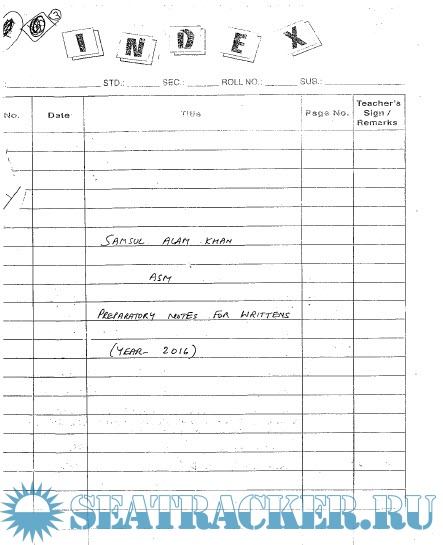 INDEX
STD.: SEC.: ROLL NO.: SUB.:
No. Date Title Page No. Teacher's Sign / Remarks
SAMSUL ALAM KHAN
ASM
PREPARATORY NOTES FOR WRITTENS
(YEAR- 2016)
SEATRACKER.RU